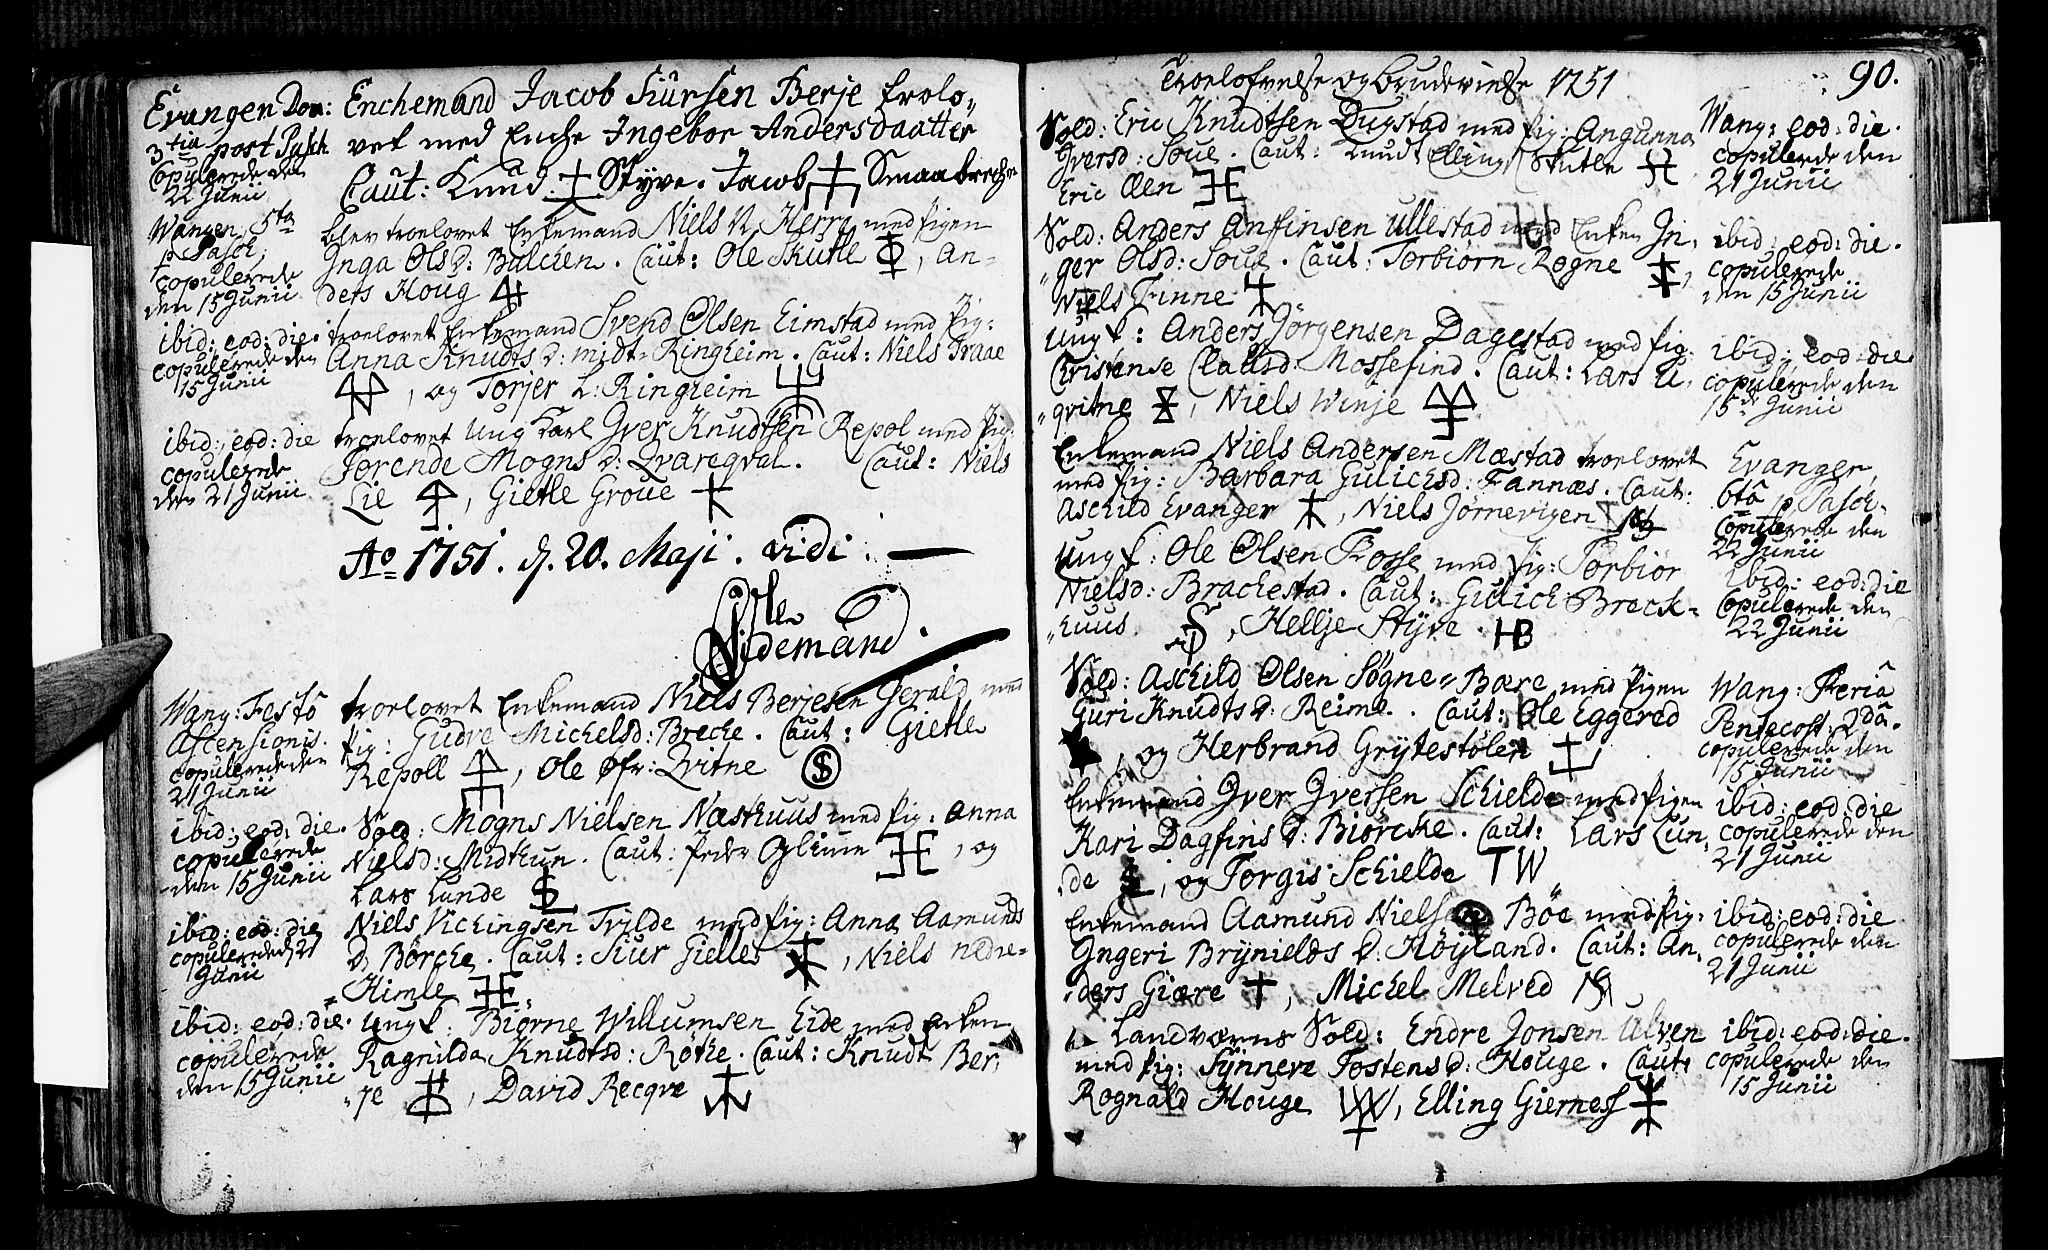 Evangen Dom:
3tia post Pasch.
Copulerede den
22 Junii
Enchemand Jacob Siursen Berje trolo-
vet med Enche Ingebor Andersdaatter
Caut: Knud Styve. Jacob Smaabreche
Wangen, 5ta
p. Pasch;
copulerede
den 15 Junii
blev troelovet Enkemand Niels N. Herre med pigen
Inga Ols D: Bulchen. Caut: Ole Skutle, An-
ders Houg
ibid: eod: die.
copulerede den
15 Junii
troelovet Enkemand Svend Olsen Eimstad med pig:
Anna Knudts D: midt-Ringheim. Caut: Niels Traae
, og Torjer L: Ringheim
ibid: eod: die
copulerede
den 21 Junii
troelovet Ung Karl Iver Knudtsen Repol med pig:
Jorende Mogns D: Qvareqval. Caut: Niels
Lie, Gietle Groue
Ao 1751. d. 20. Maji. vidi.
Tidemand.
Wang: Festo
Ascensionis.
copulerede den
21 Junii
troelovet Enkemand Niels Berjesen Gerald med
pig: Gudve Michelsd: Breche. Caut: Gietle
Repoll, Ole Øfr: Qvitne
ibid: eod: die.
copulerede
den 15 Junii
Sold: Mogns Nielsen Næsthuus med pig: Anna
Nielsd: Midthun. Caut: Peder Glime, og
Lars Lunde
ibid: eod: die
copulerede d. 21
Junii
Niels Vichingsen Tvilde med pig: Anna Aamunds
D. Børche. Caut: Siur Gielle, Niels nedre-
Himle
ibid: eod: die.
copulerede
den 15 Junii
Ung k: Biørne Willumsen Eide med Enken
Ragnilda Knudtsd: Røthe. Caut: Knudt Ber-
-ge, David Recqve
Troelofvelse og Brudevielse 1751
90.
Sold: Eric Knudtsen Dugstad med pig: Angunna
Iversd: Soue. Caut: Knudt Ellings Skutle
Eric Øen
Wang: eod: die.
copulerede den
21 Junii
Sold: Anders Anfinsen Ullestad med Enken In-
-ger Olsd: Soue. Caut: Torbiørn Rogne,
Niels Finne
ibid: eod: die.
copulerede
den 15 Junii
Ung k: Anders Jörgensen Dagestad med pig:
Christense Clausd: Mossefind. Caut: Lars U-
-qvitne, Niels Winje
ibid: eod: die
copulerede den
15de Junii
Enkemand Niels Andersen Mæstad troelovet
med pig: Barbara Gulichsd: Fannæs. Caut:
Aschild Evanger, Niels Jørnevigen
Evanger,
6ta p. Pasch.
Copulerede den
22 Junii
Ung k: Ole Olsen Fosse med pig: Torbiør
Nielsd: Brachestad. Caut: Gulich Breck-
-huus, Hellje Styve. HB
Ibid: eod: die
Copulerede den
22 Junii
Sold: Aschild Olsen Søgne-Bære med pigen
Guri Knudts D: Reime. Caut: Ole Eggered
, og Herbrand Grytestølen
Wang: Feria
Pentecost: 2da.
copulerede den
15 Junii
Enkemand Iver Iversen Schielde med pigen
Kari Dagfins D: Biørcke. Caut: Lars Lun-
-de, og Torgis Schielde TW
ibid: eod: die
copulerede den
21 Junii
Enkemand Aamund Nielsen Böe med pig:
Ingeri Brynields D: Höyland. Caut: An-
-ders Giære, Michel Melved
ibid: eod: die.
copulerede den
21 Junii
Landværns Sold: Endre Jonsen Ulven
med pig: Synneve Tostens D: Houge. Caut:
Rognald Houge, Elling Gierness
ibid: eod: die.
copulerede den
15 Junii